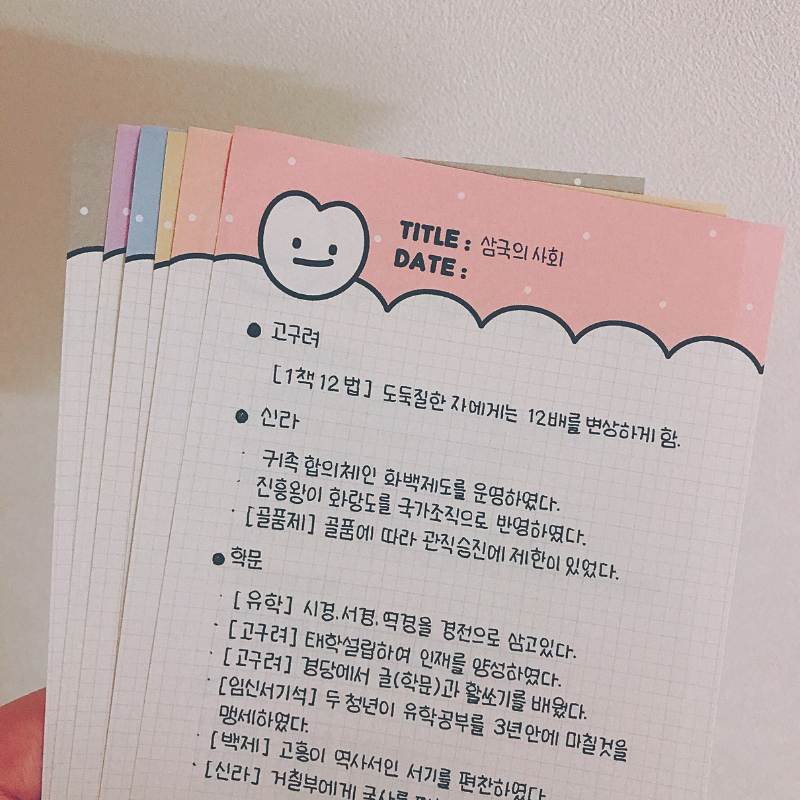 TITLE : 삼국의 사회
DATE :
● 고구려
[1책 12 법] 도둑질한 자에게는 12배를 변상하게 함.
● 신라
· 귀족 합의체인 화백제도를 운영하였다.
· 진흥왕이 화랑도를 국가조직으로 반영하였다.
· [골품제] 골품에 따라 관직승진에 제한이 있었다.
● 학문
· [유학] 시경, 서경, 역경을 경전으로 삼고있다.
· [고구려] 태학설립하여 인재를 양성하였다.
· [고구려] 경당에서 글(학문)과 활쏘기를 배웠다.
· [임신서기석] 두 청년이 유학공부를 3년안에 마칠것을
맹세하였다.
· [백제] 고흥이 역사서인 서기를 편찬하였다
· [신라] 거칠부에게 국사를